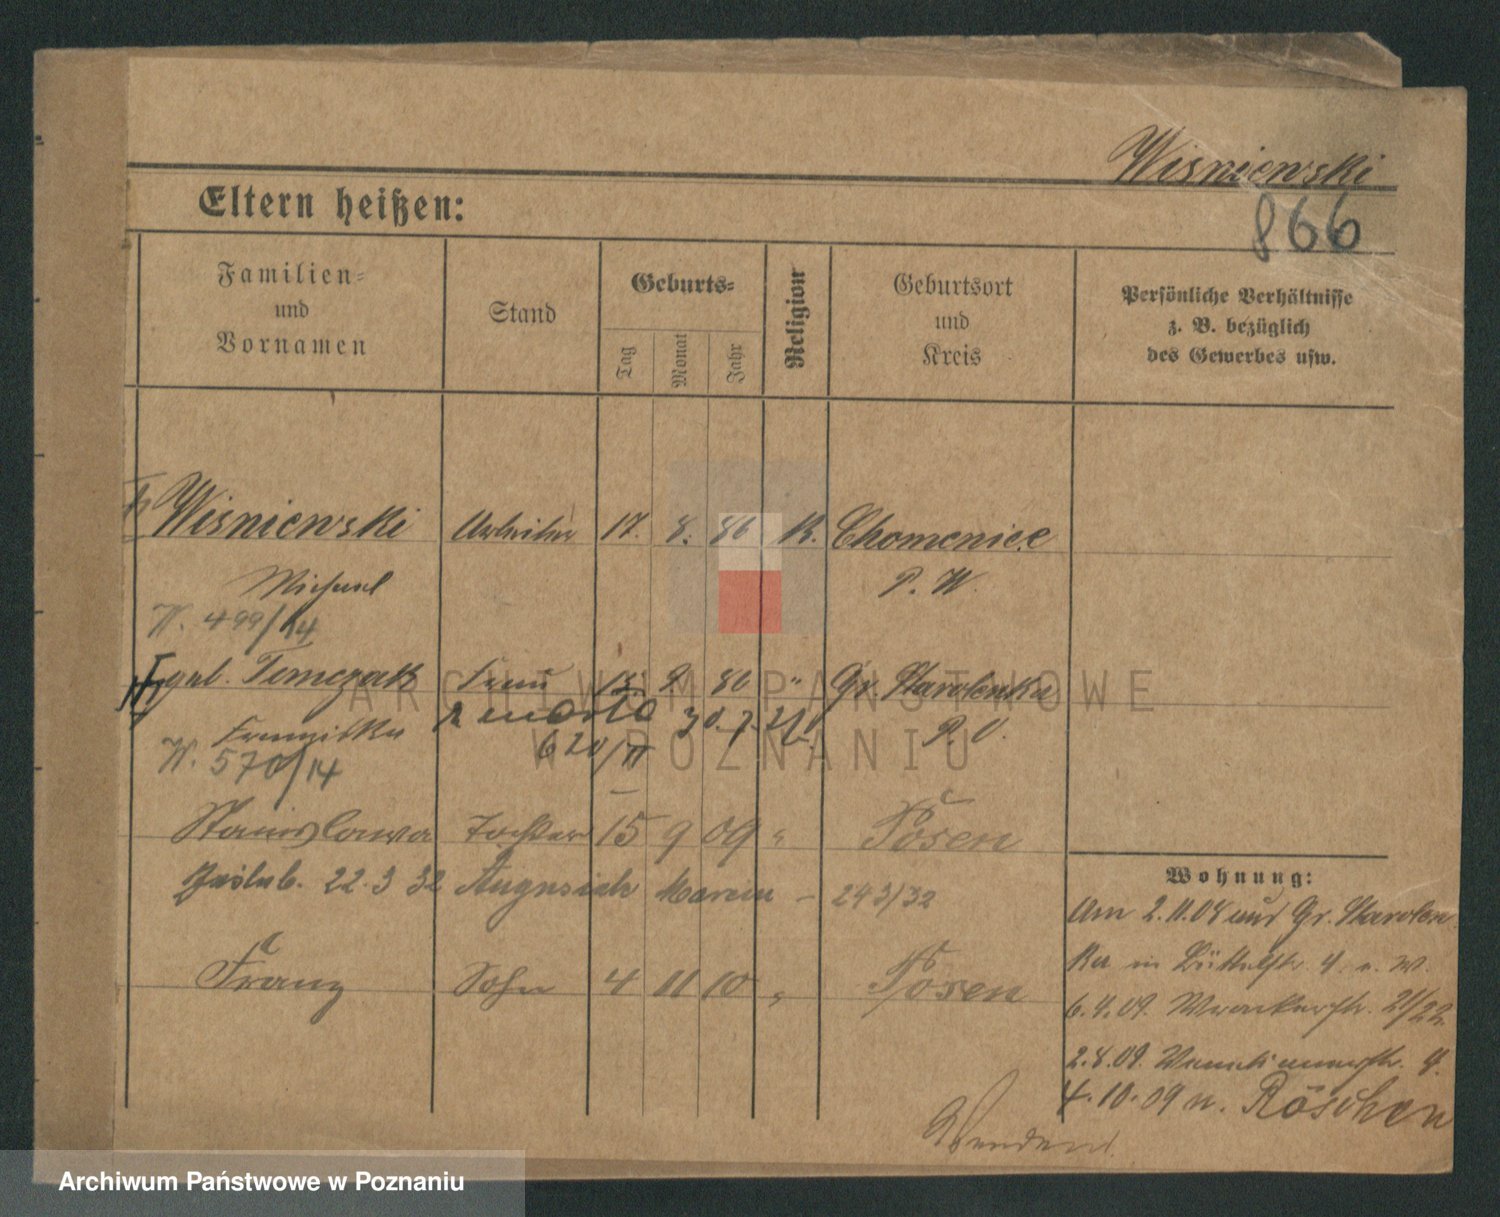 Wisniewski
Eltern heißen:
866
Familien- und Vornamen
Stand
Geburts-
Tag
Monat
Jahr
Religion
Geburtsort und Kreis
Persönliche Verhältnisse z. B. bezüglich des Gewerbes usw.
Wisniewski Arbeiter 17. 8. 86 K. Chomenice
Michael P. W.
W. 499/14
geb. Tomczak Frau 9 80 " Gr. Starolenka
Franziska zmarła 30.7. P. O.
W. 570/14 620/II
Stanislawa Tochter 15 9 09 " Posen
Zaślub. 22.3 32 Augusiak Marcin - 243/32
Franz Sohn 4 11 10 " Posen
Wohnung:
Am 2.11.08 aus Gr. Starolen
ka in Büttelstr. 4. n. W.
6.4.09. Wronkerstr. 21/22
2.8.09. Venetianerstr. 4.
4.10.09 n. Röschen
Wenden!
ARCHIWUM PAŃSTWOWE
W POZNANIU
Archiwum Państwowe w Poznaniu